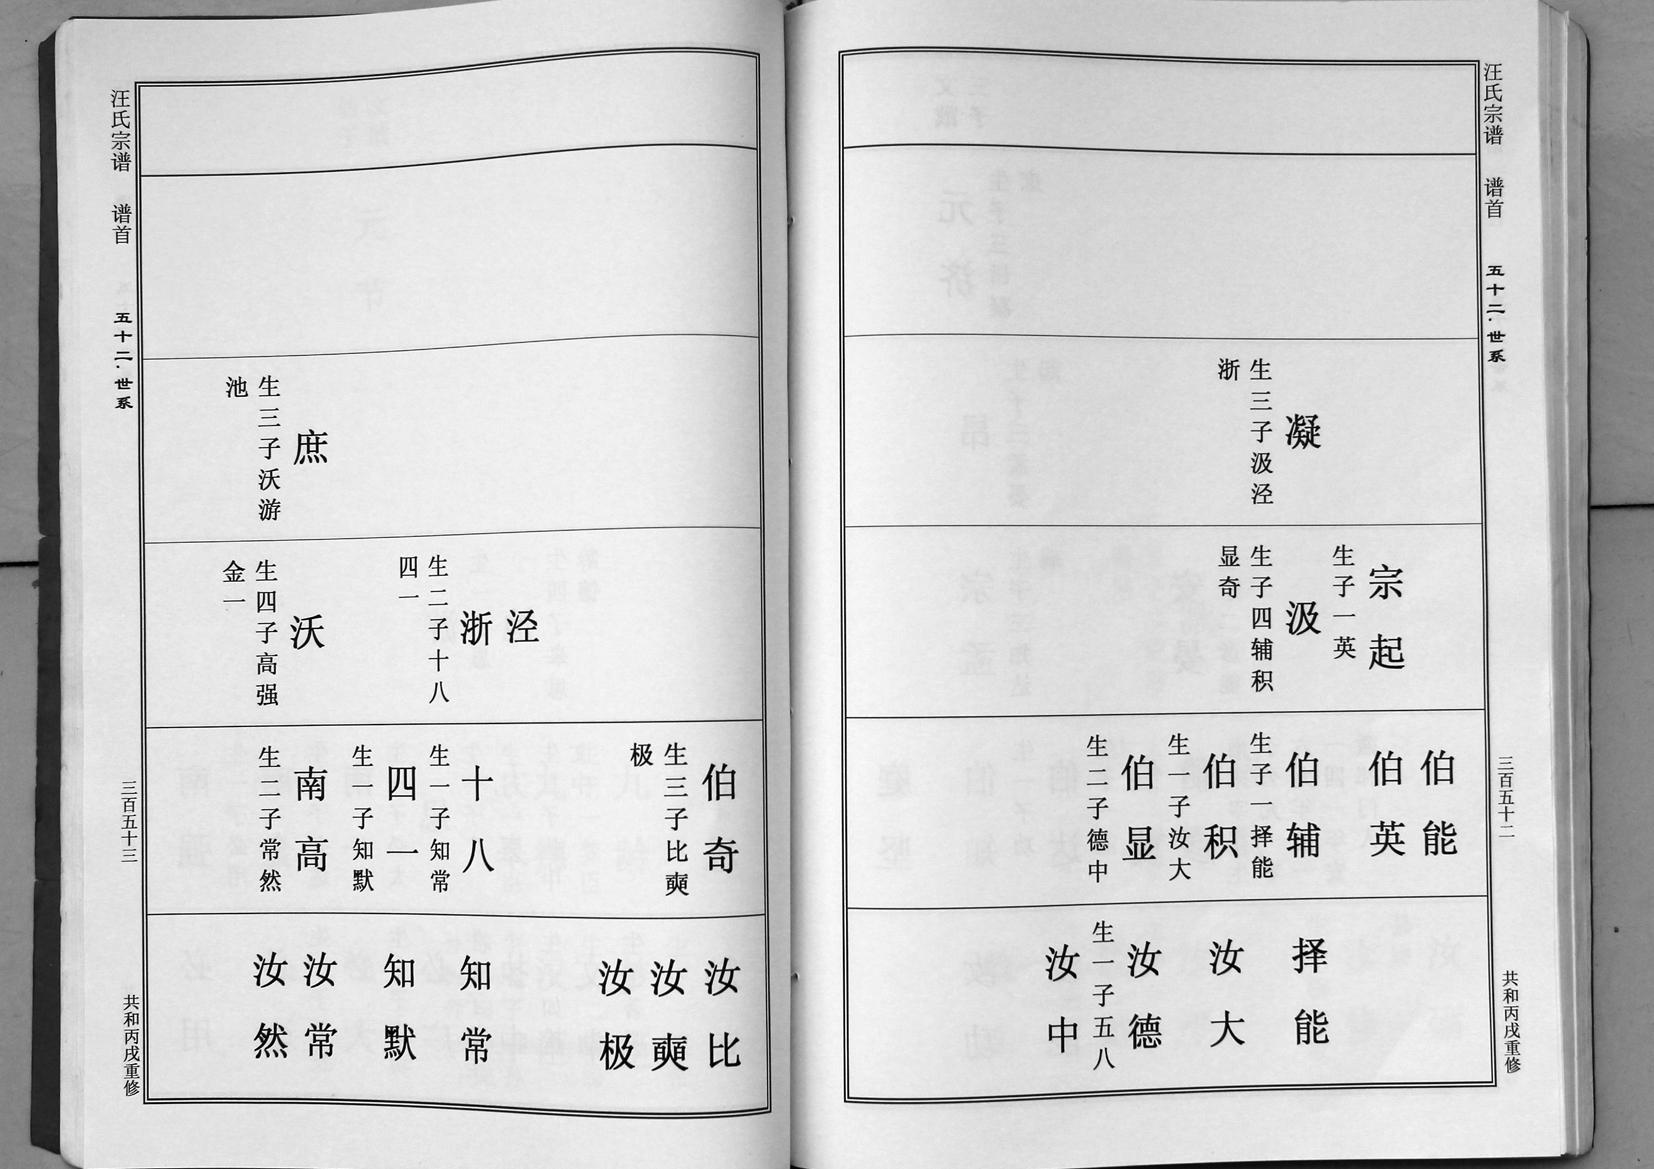 汪氏宗谱 谱首 五十二·世系 三百五十二 共和丙戌重修
凝
生三子汲泾
浙
宗起
生子一英
汲
生子四辅积
显奇
伯能
伯英
伯辅
生子一择能
伯积
生一子汝大
伯显
生二子德中
择能
汝大
汝德
生一子五八
汝中
庶
生三子沃游
池
泾
浙
生二子十八
四一
沃
生四子高强
金一
伯奇
生三子比奭
极
十八
生一子知常
四一
生一子知默
南高
生二子常然
汝比
汝奭
汝极
知常
知默
汝常
汝然
汪氏宗谱 谱首 五十二·世系 三百五十三 共和丙戌重修